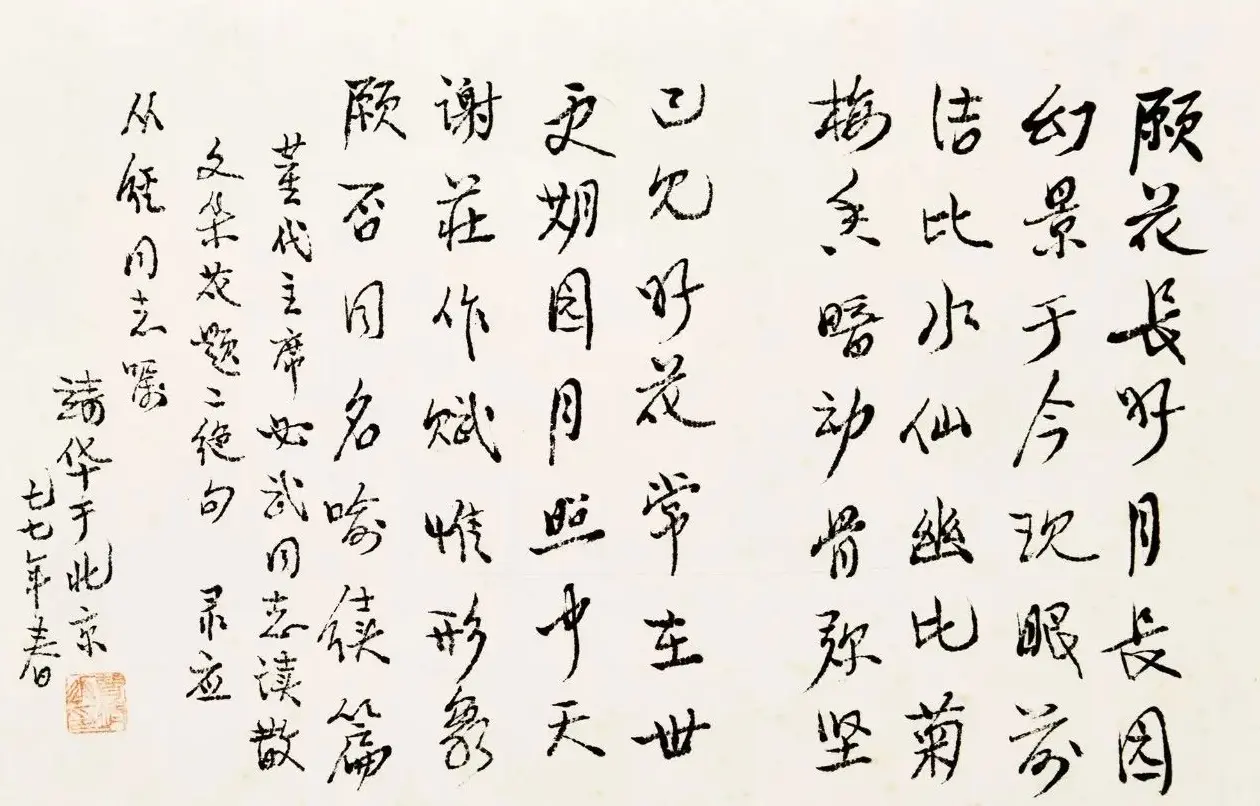 愿花长好月长圆
幻景于今现眼前
洁比水仙幽比菊
梅香暗动骨弥坚
已见好花常在世
更期圆月照中天
谢庄作赋惟形象
愿否同名喻续篇
董代主席必武同志读散
文朵花题二绝句 录应
从经同志嘱
靖华于北京
七七年春